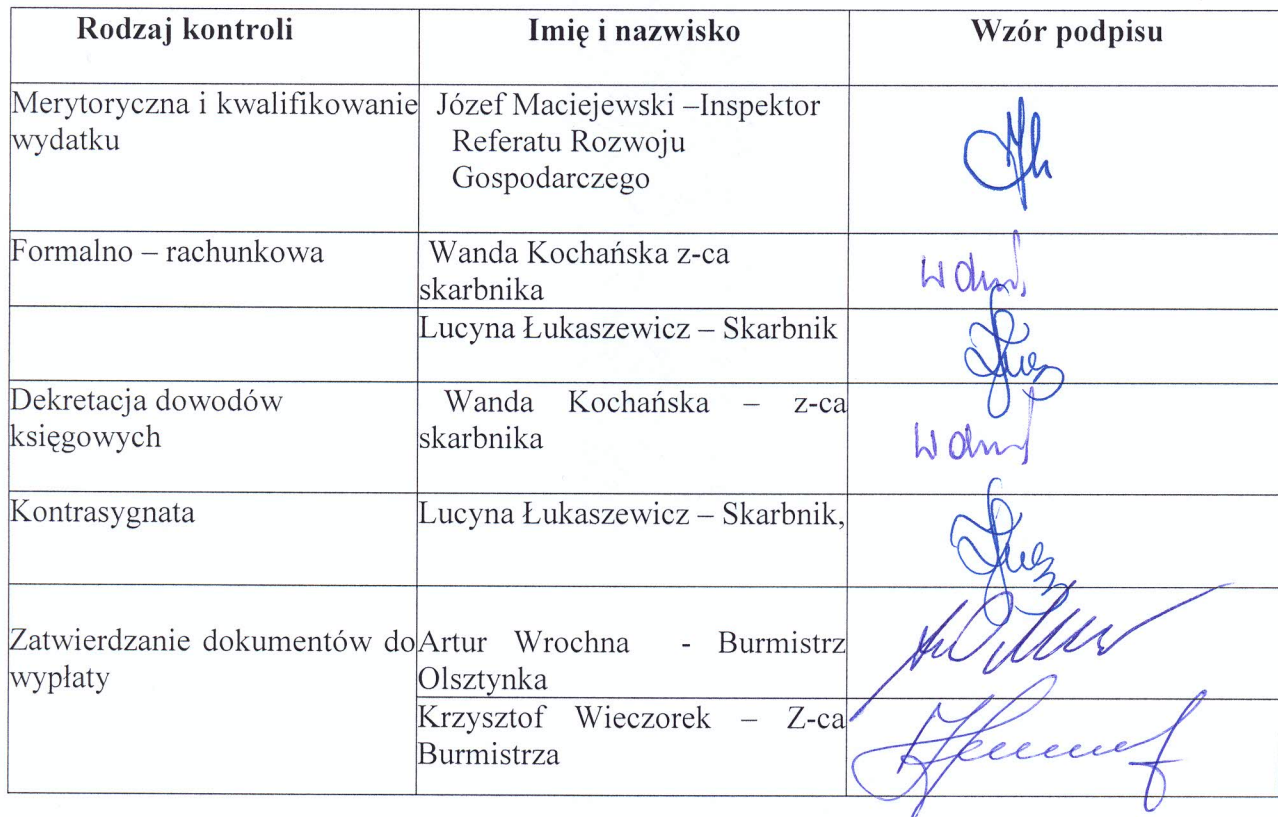 Rodzaj kontroli Imię i nazwisko Wzór podpisu
Merytoryczna i kwalifikowanie
wydatku
Józef Maciejewski –Inspektor
Referatu Rozwoju
Gospodarczego
Formalno – rachunkowa
Wanda Kochańska z-ca
skarbnika
Lucyna Łukaszewicz – Skarbnik
Dekretacja dowodów
księgowych
Wanda Kochańska – z-ca
skarbnika
Kontrasygnata
Lucyna Łukaszewicz – Skarbnik,
Zatwierdzanie dokumentów do
wypłaty
Artur Wrochna - Burmistrz
Olsztynka
Krzysztof Wieczorek – Z-ca
Burmistrza